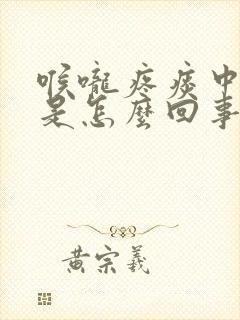 喉嚨疼痰中
是怎麼回事
黃宗羲